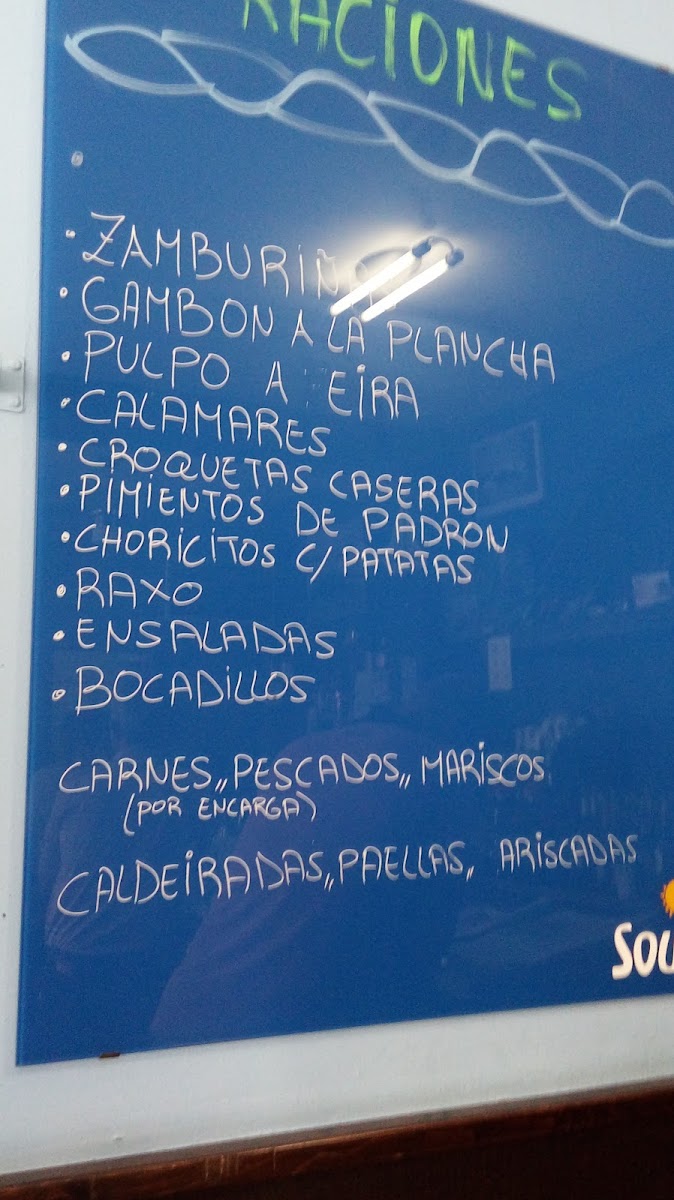 RACIONES
ZAMBURIÑAS
GAMBON A LA PLANCHA
PULPO A EIRA
CALAMARES
CROQUETAS CASERAS
PIMIENTOS DE PADRON
CHORICITOS C/ PATATAS
RAXO
ENSALADAS
BOCADILLOS
CARNES,, PESCADOS,, MARISCOS
(POR ENCARGA)
CALDEIRADAS,, PAELLAS,, ARISCADAS
SOU